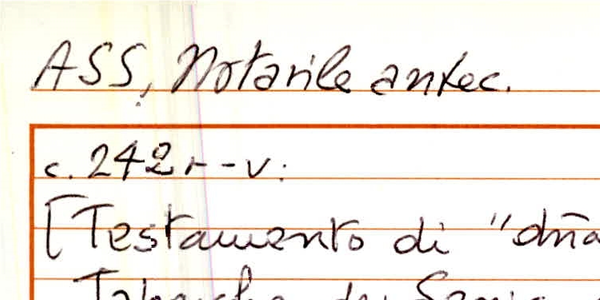 ASS, Notarile antec.
c. 242r-v:
[Testamento di "dña